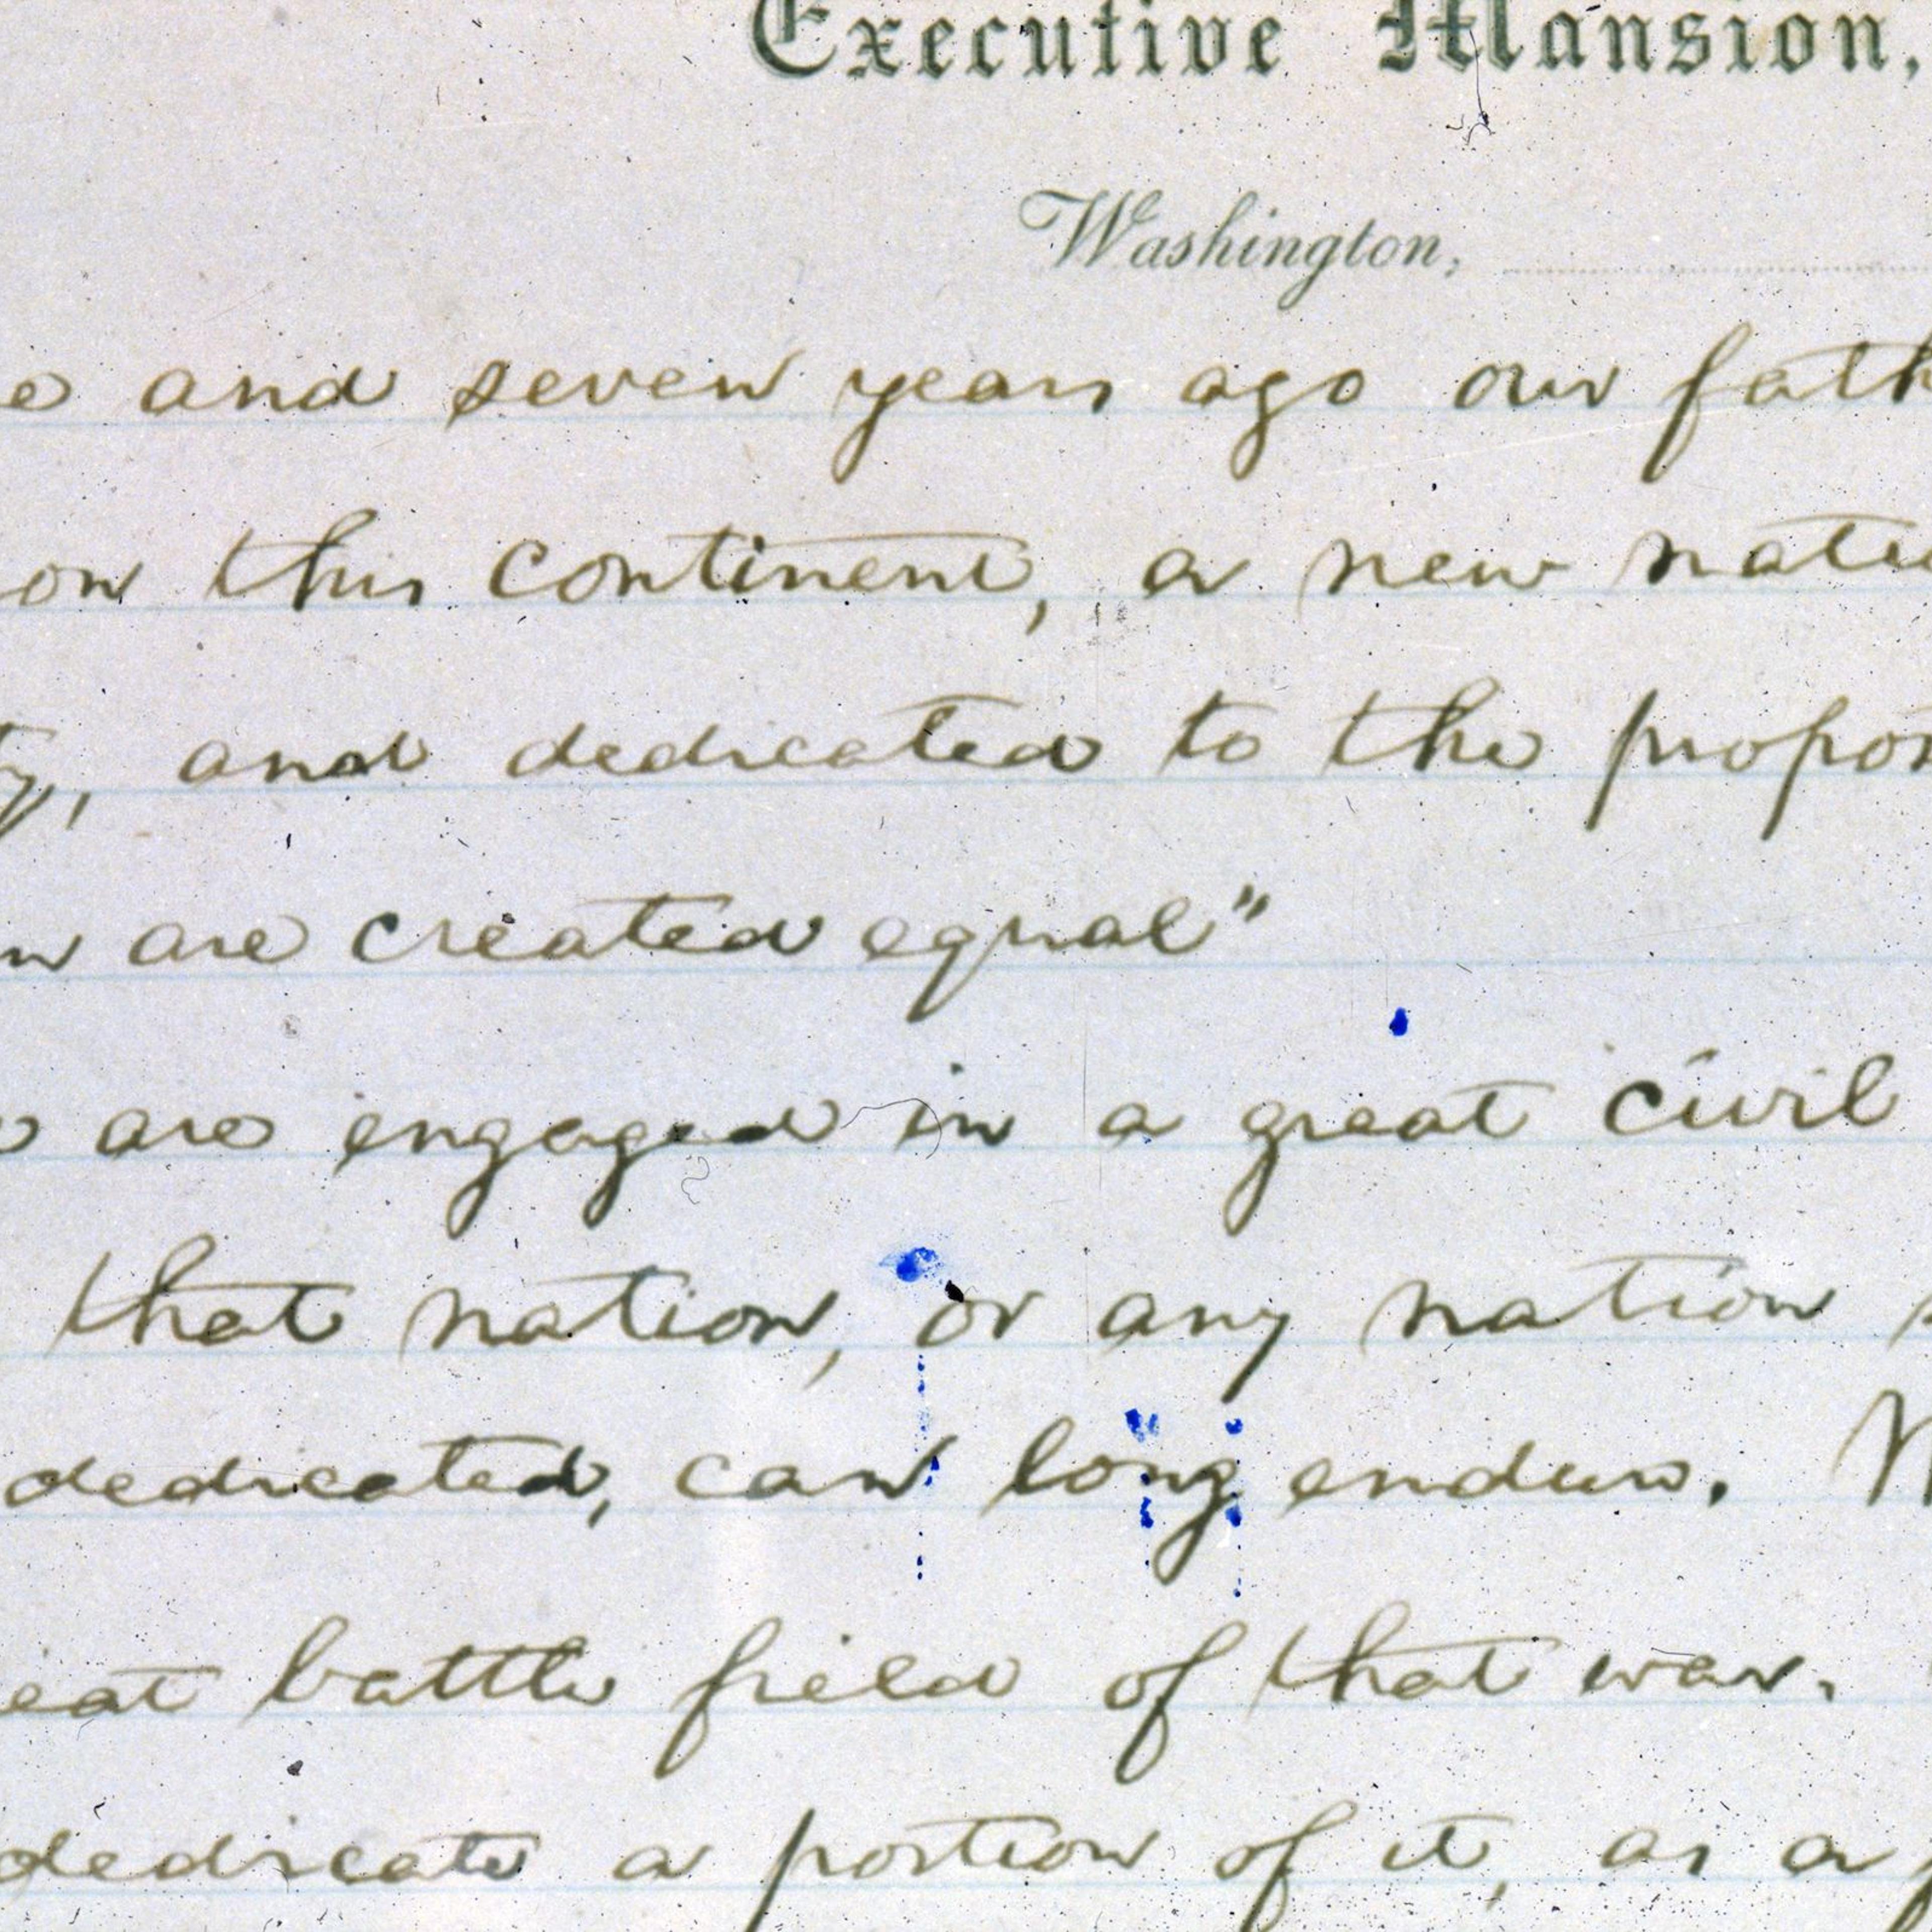 Executive Mansion,
Washington,
e and seven years ago our fath
on this continent, a new natio
ty, and dedicated to the propos
n are created equal"
are engaged in a great civil
that nation, or any nation s
dedicated, can long endure.
eat battle field of that war.
dedicate a portion of it, as a